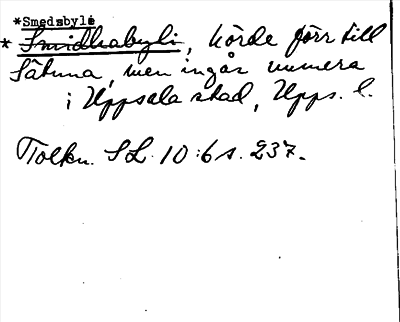 *Smedsbyle
* Smidhabyli, hörde förr till
Sätuna, men ingår numera
i Uppsala stad, Upps. l.
Tolkn. SL 10:6 s. 237.